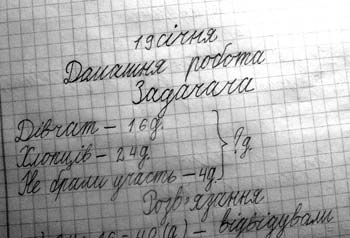 19 січня
Домашня робота
Задачача
Дівчат – 16д.
Хлопців – 24д. } ?д
Не брали участь – 4д.
Розв'язання
24+16=40(д) – відвідували